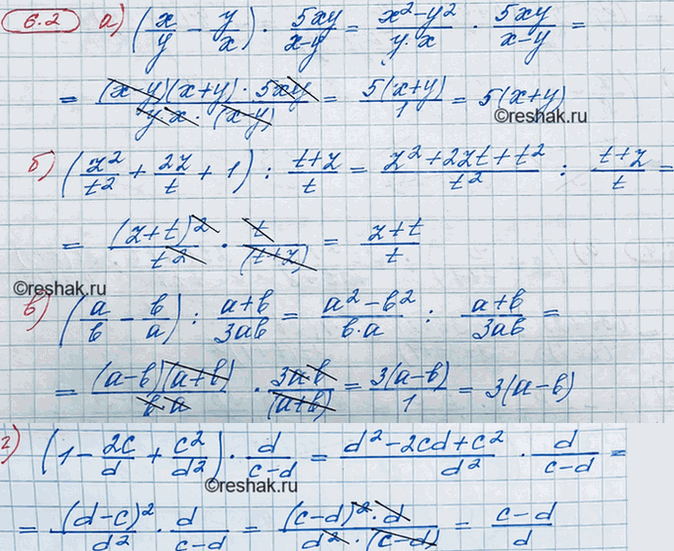 6.2 а) (x/y - y/x) · 5xy/(x-y) = (x²-y²)/(y·x) · 5xy/(x-y) =
= ((x-y)(x+y)·5xy)/(y·x·(x-y)) = 5(x+y)/1 = 5(x+y)
©reshak.ru
б) (z²/t² + 2z/t + 1) : (t+z)/t = (z²+2zt+t²)/t² : (t+z)/t =
= (z+t)²/t² · t/(t+z) = (z+t)/t
©reshak.ru
в) (a/b - b/a) : (a+b)/3ab = (a²-b²)/(b·a) : (a+b)/3ab =
= ((a-b)(a+b))/(b·a) · 3ab/(a+b) = 3(a-b)/1 = 3(a-b)
г) (1 - 2c/d + c²/d²) · d/(c-d) = (d²-2cd+c²)/d² · d/(c-d) =
©reshak.ru
= (d-c)²/d² · d/(c-d) = ((c-d)²·d)/(d²·(c-d)) = (c-d)/d